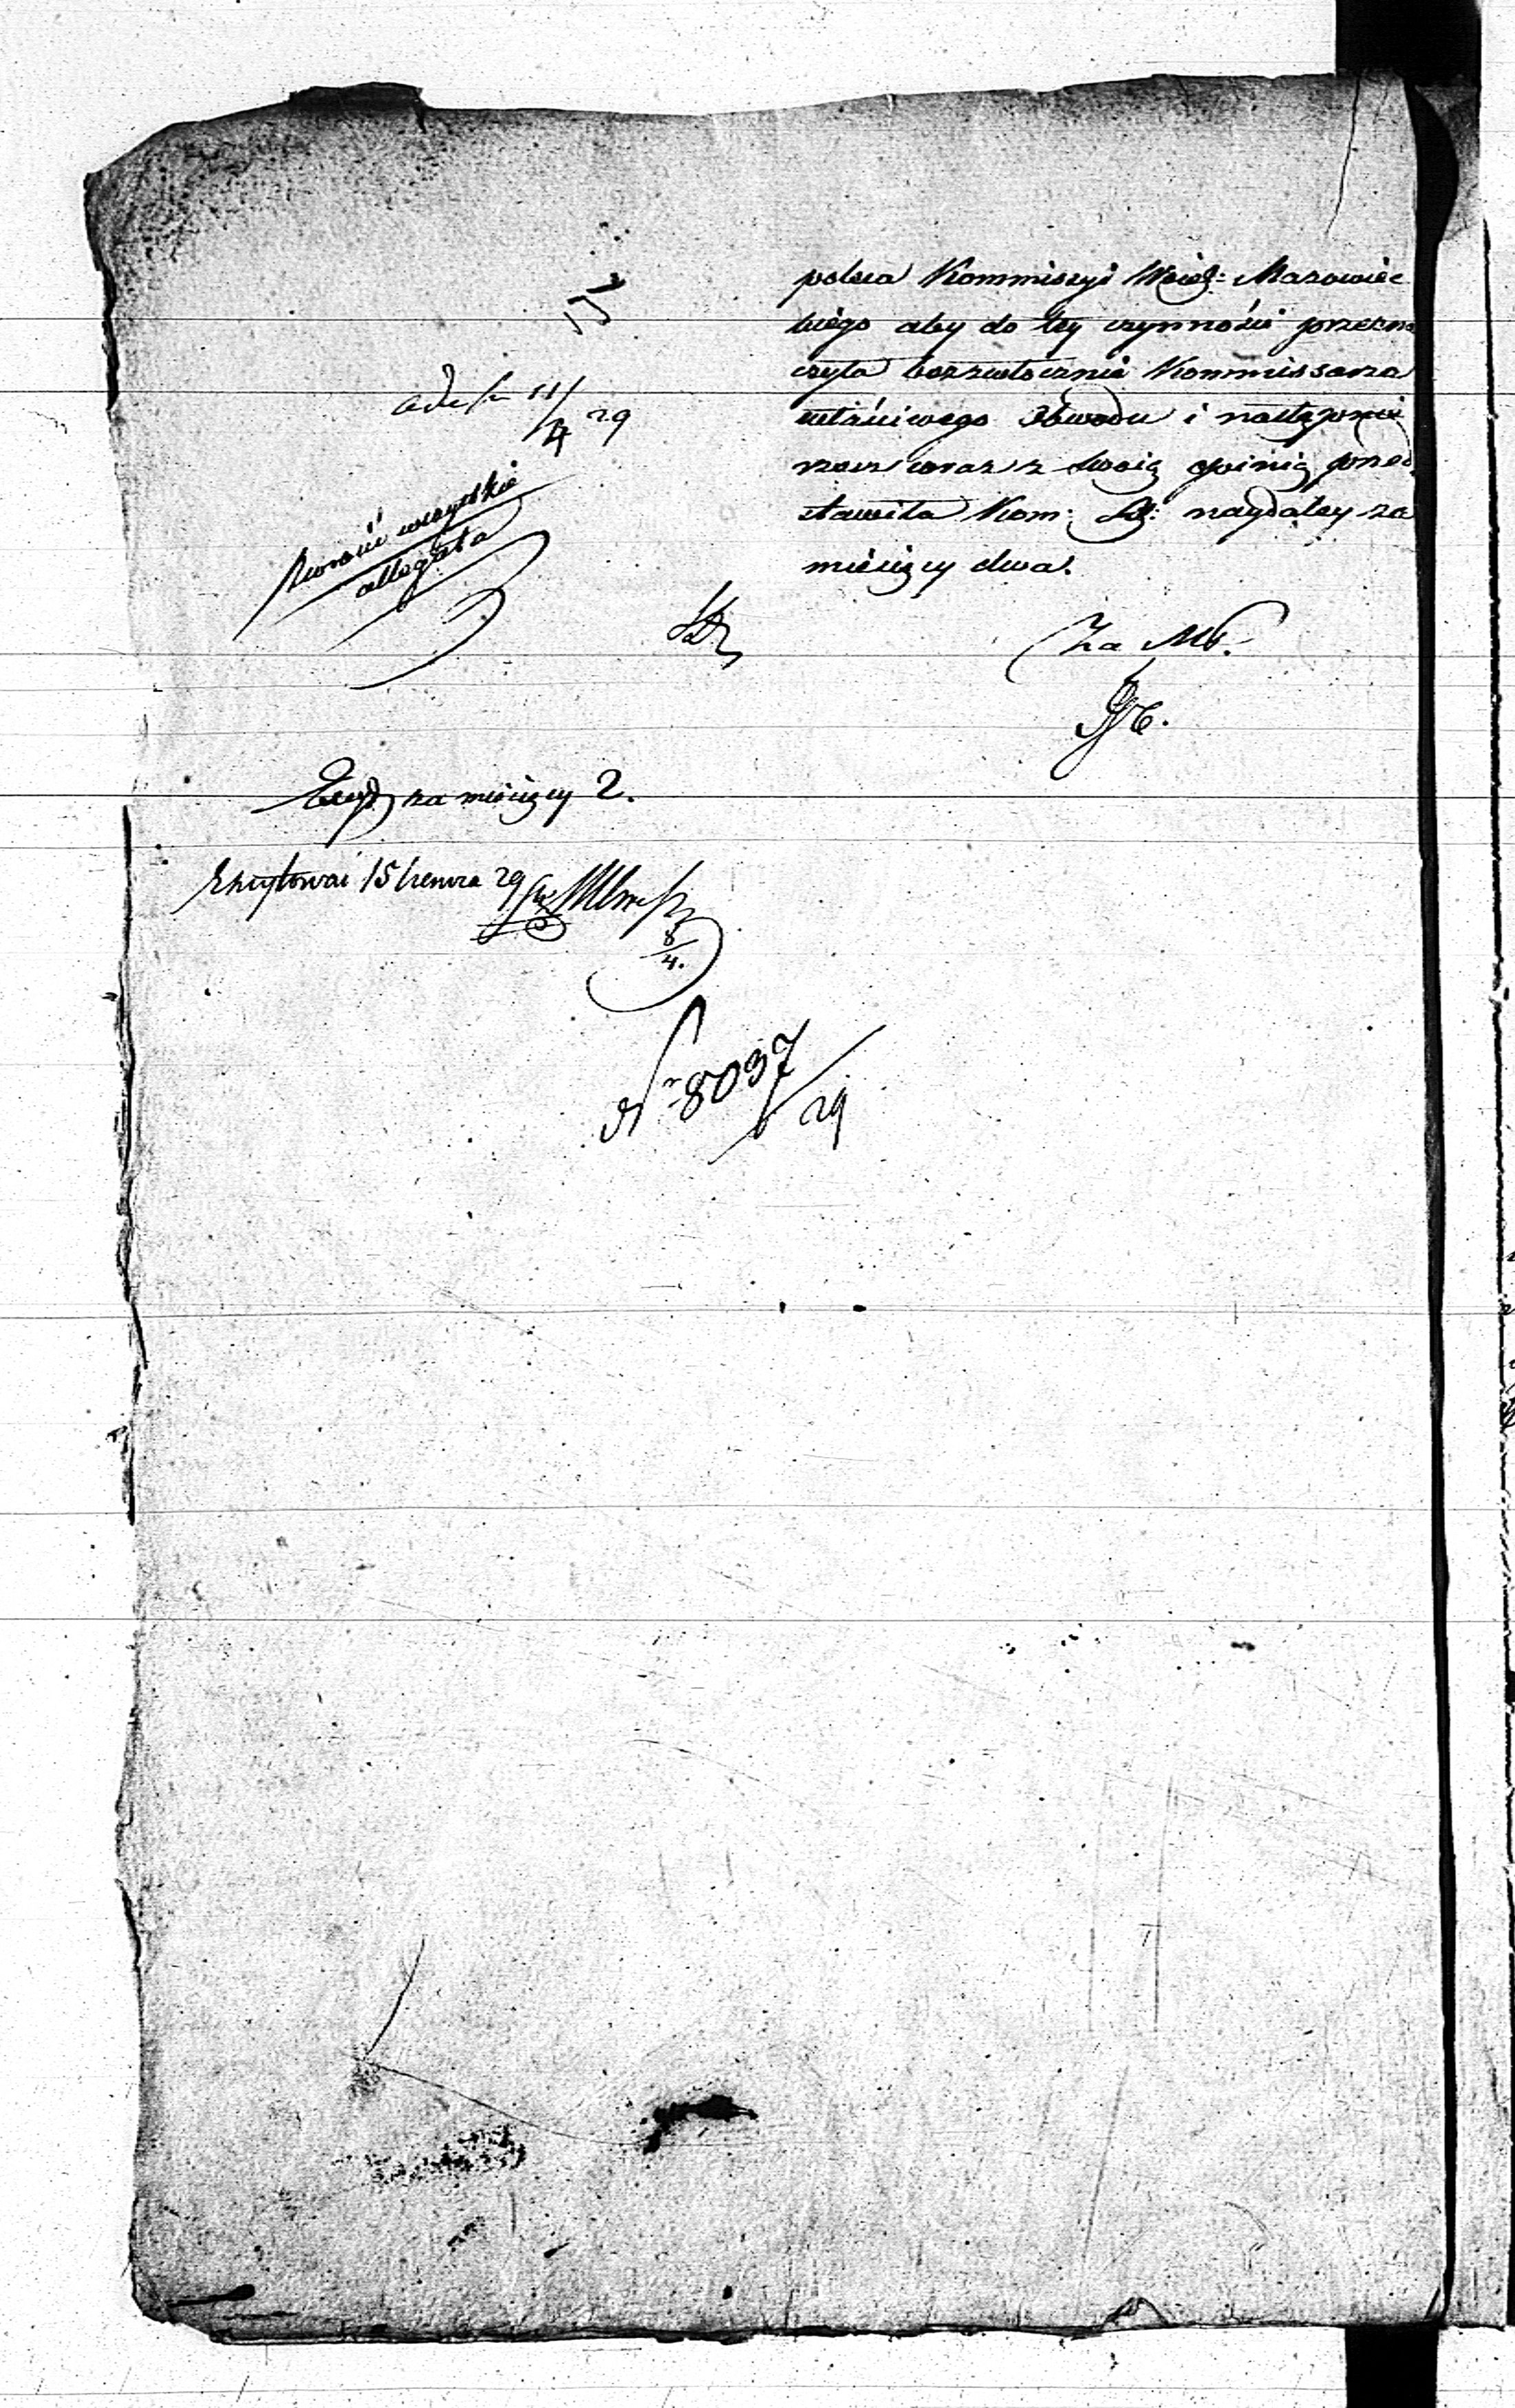 poleca Kommissyi Wojew: Mazowiec
kiego aby do tey czynności przezna
czyła bezzwłocznie Kommissarza
właściwego Obwodu i następnie
rzecz wraz z swoią opinią przed
stawiła Kom: Rz: naydaley za
miesięcy dwa.
Za MP.
11/4 29
zwrócić wszystkie
allegata
za miesięcy 2.
Excytować 15 Czerwca 29
8/4.
Nr 8037/29